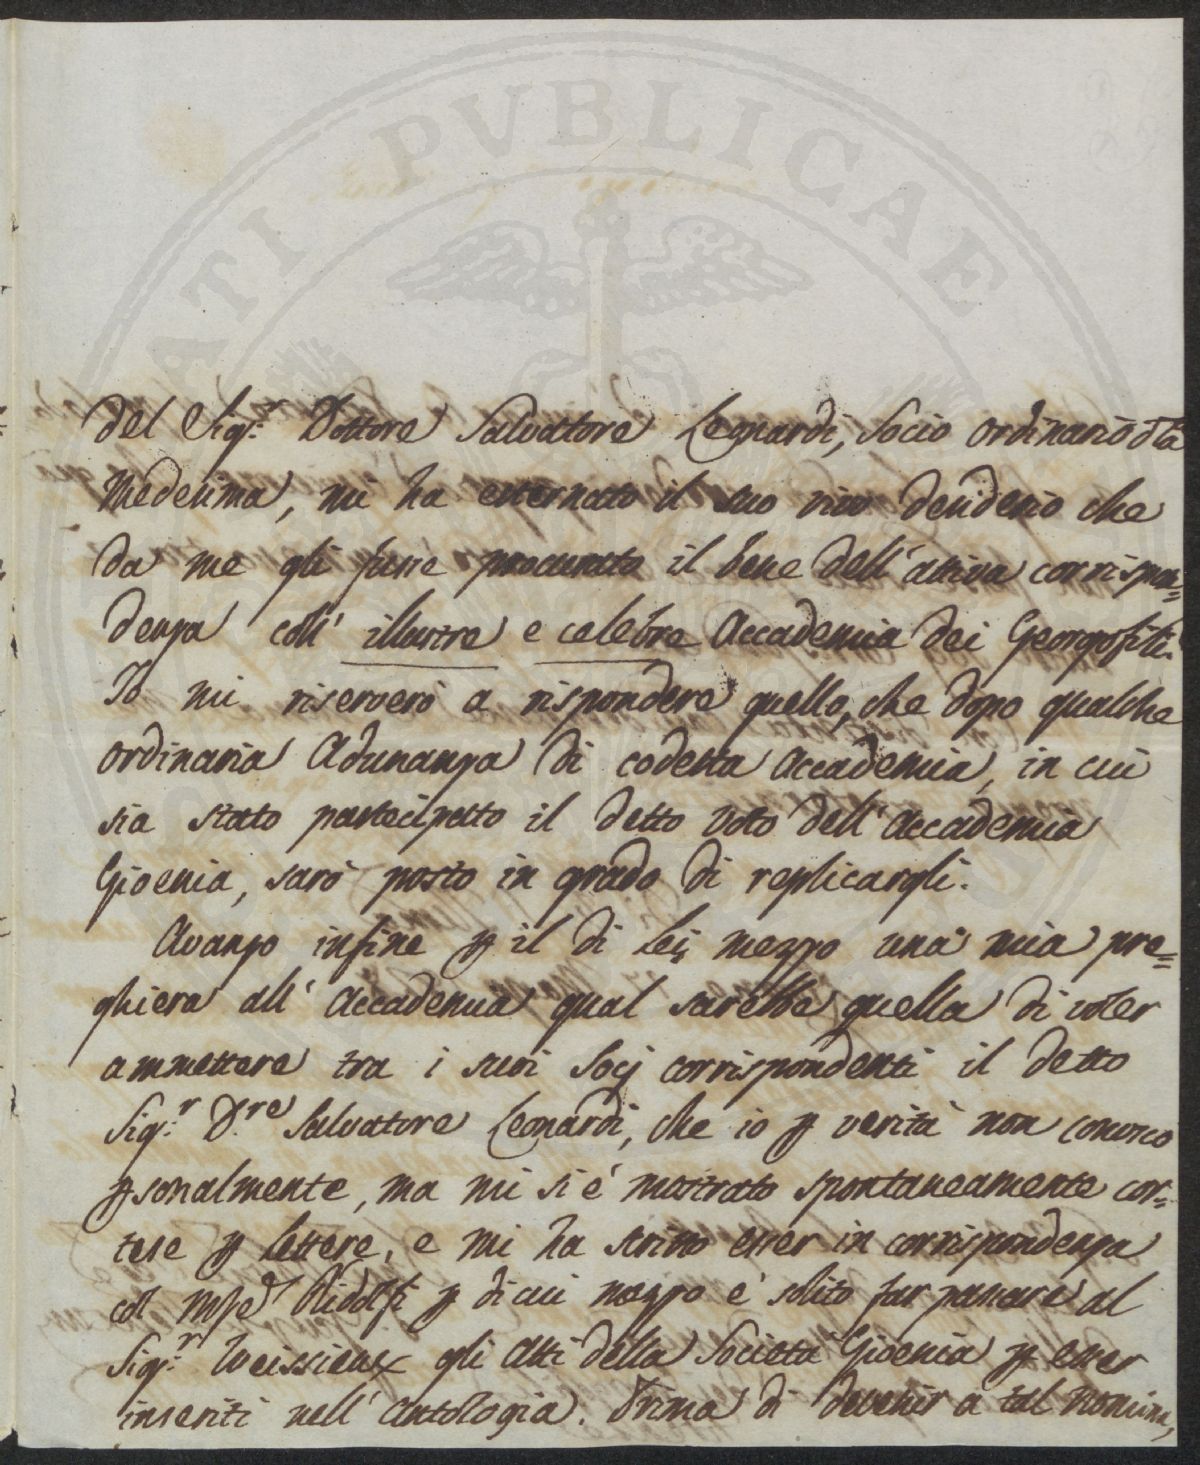 ATI PVBLICAE
del Sig.r Dottore Salvatore Leonardi, Socio ordinario dla
Medesima, mi ha esternato il suo vivo desiderio che
da me gli fusse procurato il bene dell'attiva corrispon=
denza coll' illustre e celebre Accademia dei Georgofili.
Io mi riserverò a rispondere quello, che dopo qualche
ordinaria Adunanza di codesta Accademia, in cui
sia stato partecipato il detto voto dell'Accademia
Gioenia, sarò posto in grado di replicargli.
Avanzo infine p il di Lei mezzo una mia pre=
ghiera all' Accademia qual sarebbe quella di voler
ammettere tra i suoi Socj corrispondenti il detto
Sig.r D.re Salvatore Leonardi, che io p verità non conosco
psonalmente, ma mi si è mostrato spontaneamente cor=
tese p lettere, e mi ha scritto esser in corrispondenza
col Mse Ridolfi p di cui mezzo è solito far passare al
Sig.r Vieusseux gli Atti della Società Gioenia p esser
inseriti nell' Antologia. Prima di devenir a tal nomina,